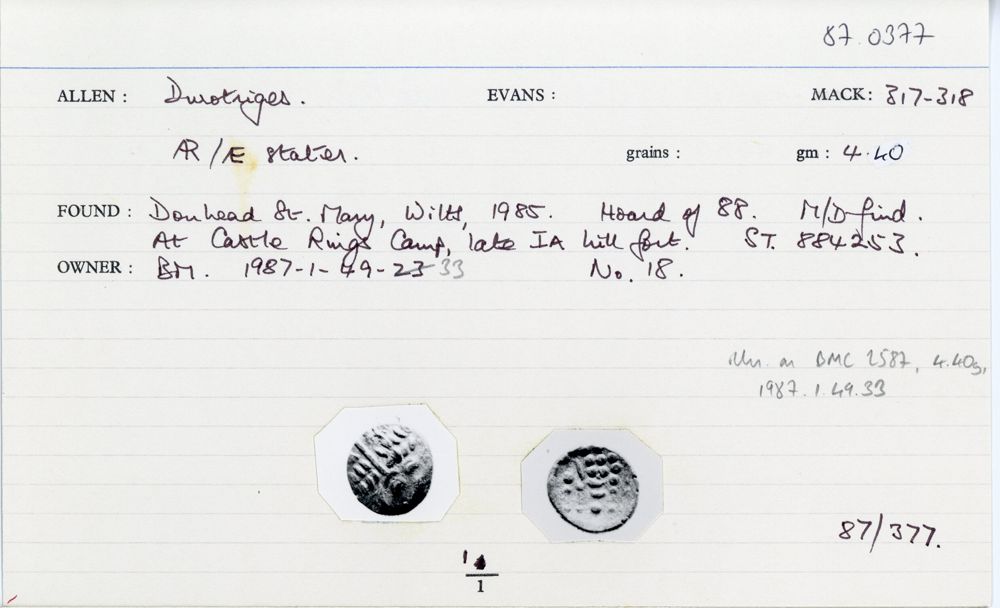 87.0377
ALLEN : Durotriges. EVANS : MACK: 317-318
AR/Æ stater. grains : gm : 4.40
FOUND : Donhead St. Mary, Wilts, 1985. Hoard of 88. M/D find.
At Castle Rings Camp, late IA hill fort. ST. 884253.
OWNER : BM. 1987-1-49-23 33 No. 18.
illus. as BMC 2587, 4.40g,
1987.1.49.33
87/377.
1
1